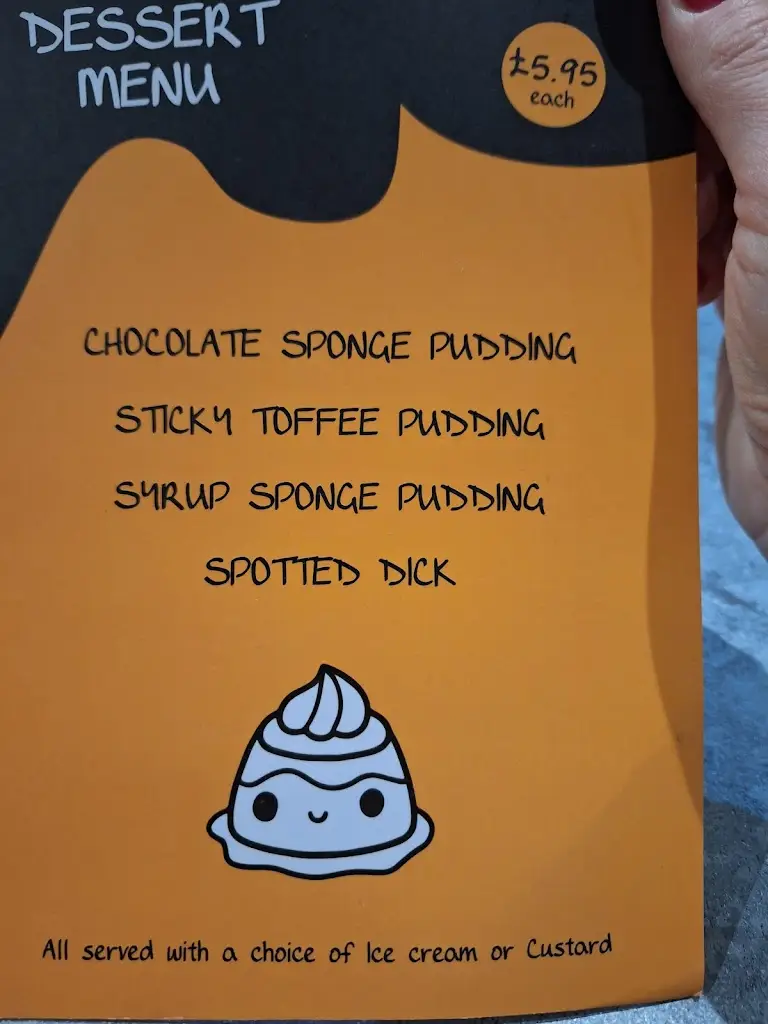 DESSERT
MENU
£5.95
each
CHOCOLATE SPONGE PUDDING
STICKY TOFFEE PUDDING
SYRUP SPONGE PUDDING
SPOTTED DICK
All served with a choice of Ice cream or Custard